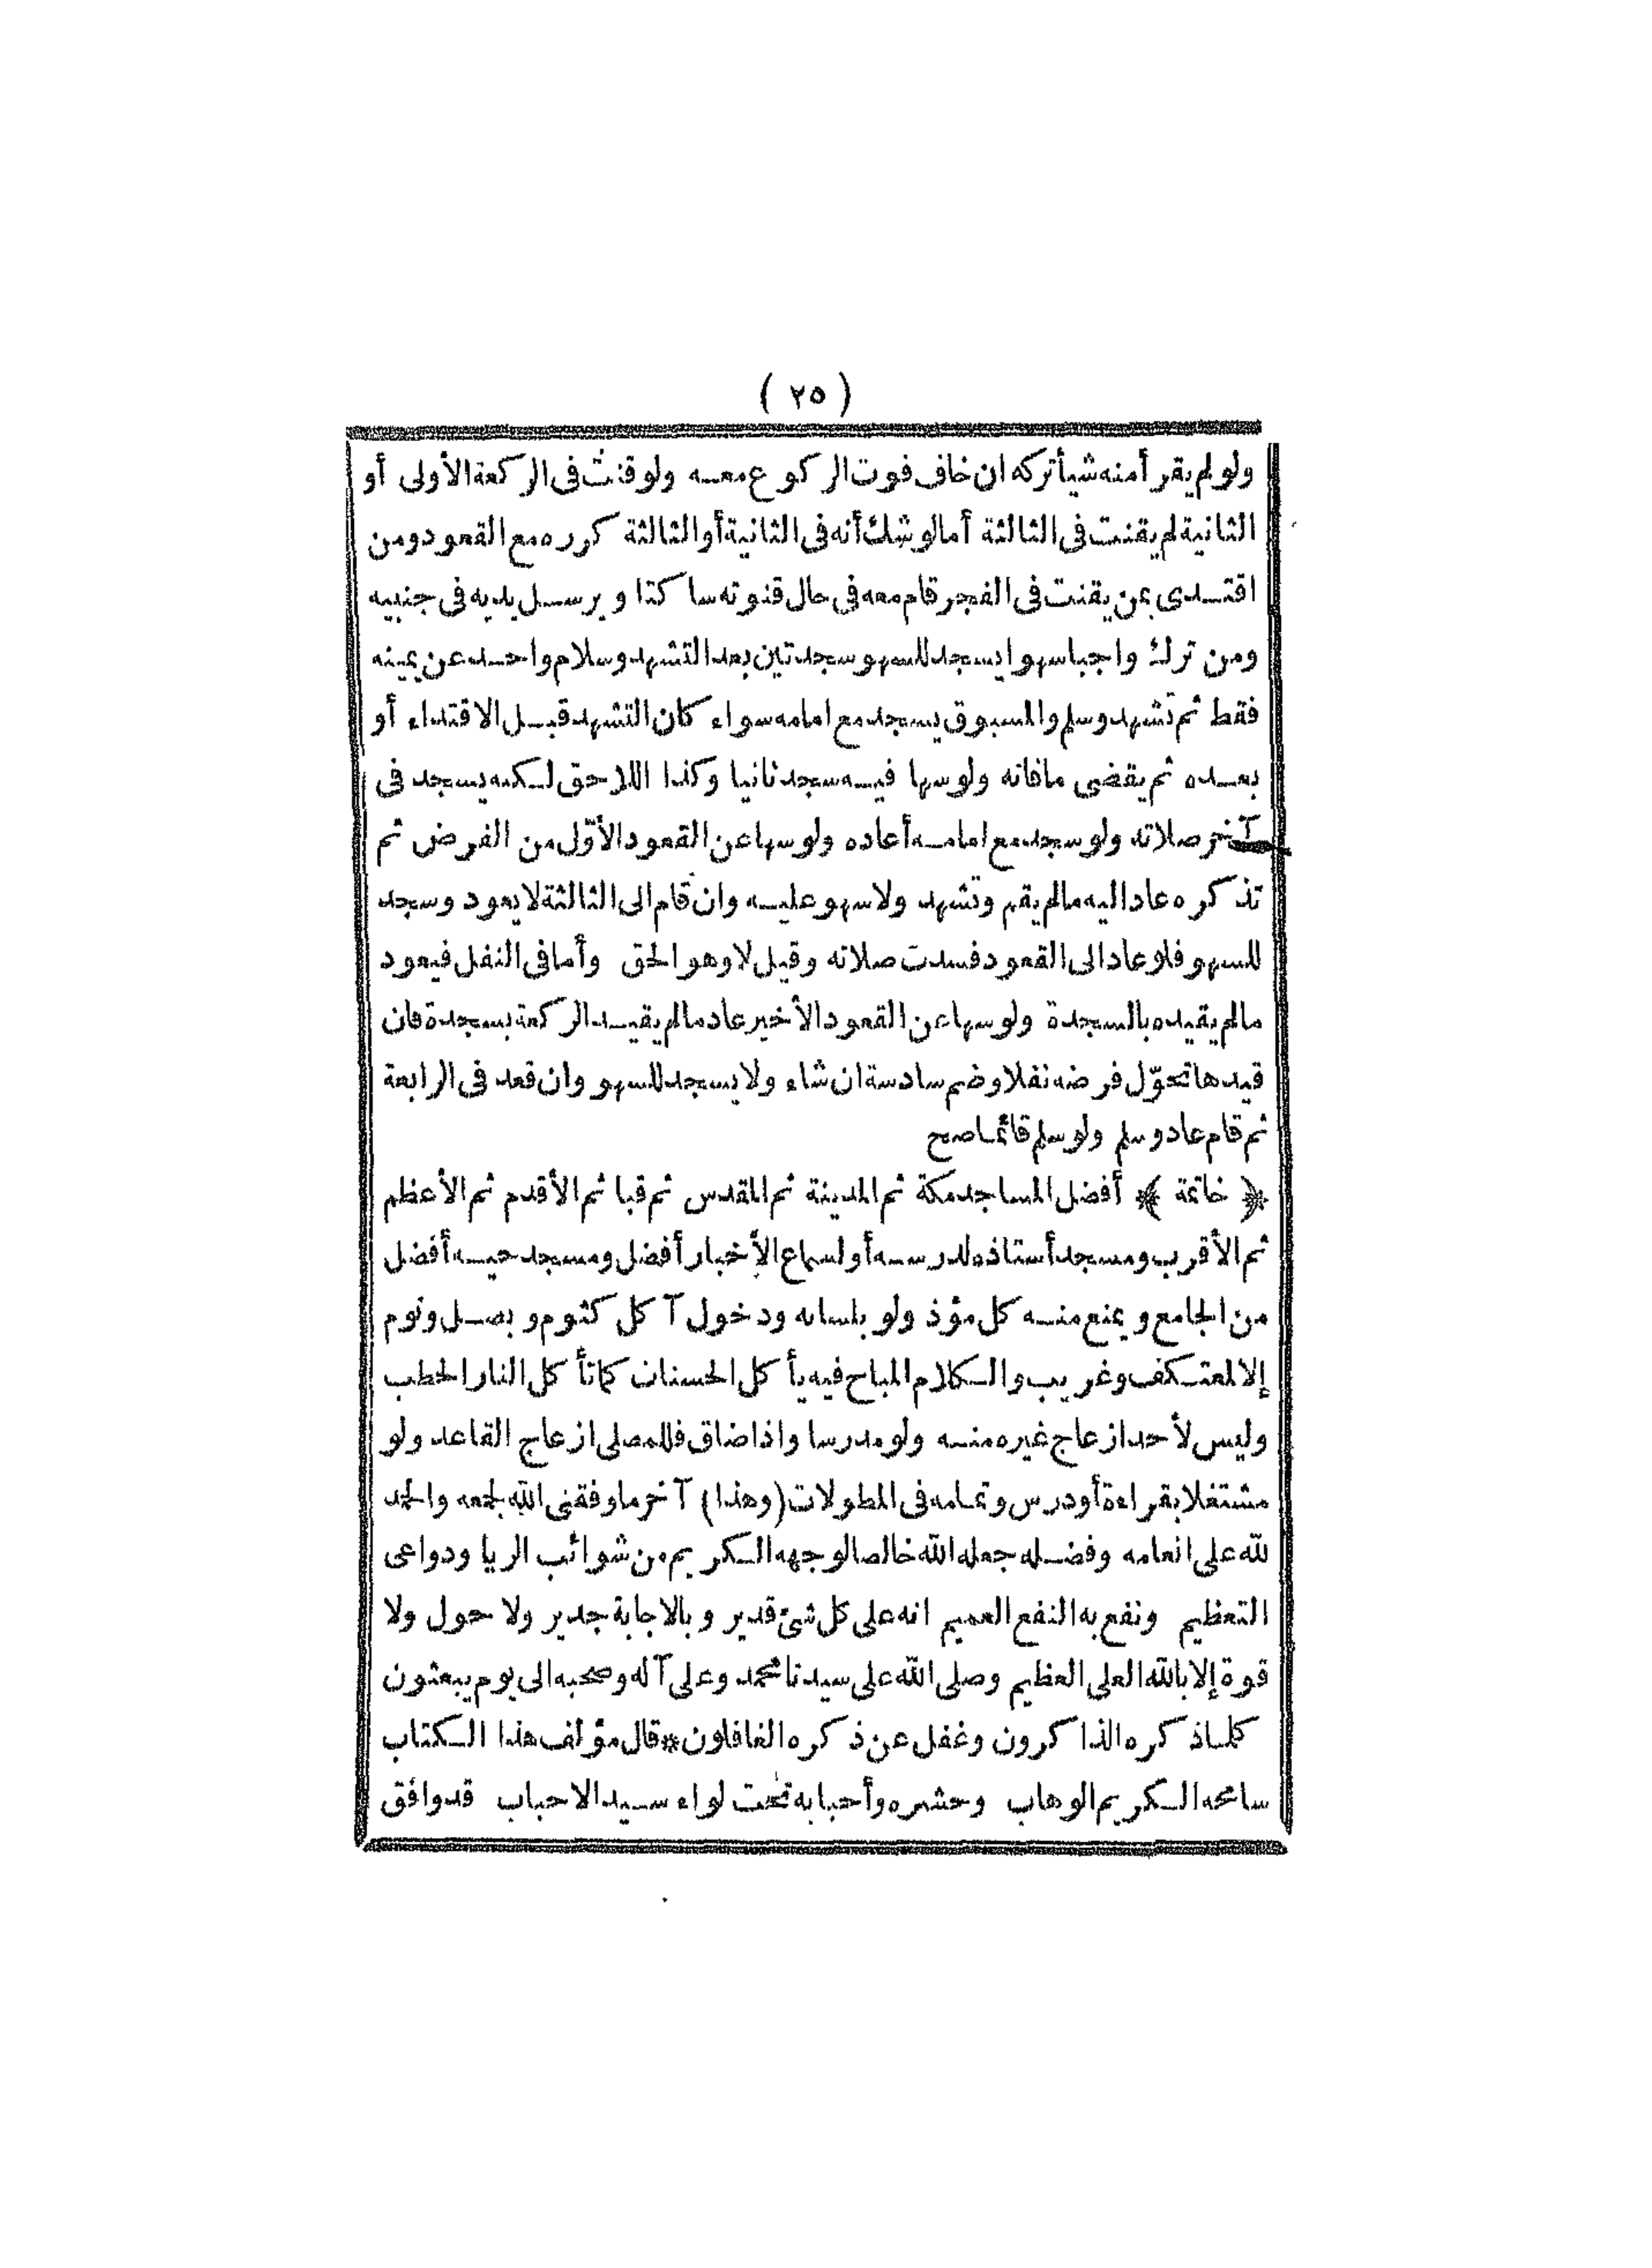 ( ٢٥ )
ولو لم يقرأ منه شيأ تركه ان خاف فوت الركوع معه ولو قنت في الركعة الأولى أو
الثانية لم يقنت في الثالثة أما لو شك أنه في الثانية أو الثالثة كرره مع القعود ومن
اقتدى بمن يقنت في الفجر قام معه في حال قنوته ساكتا ويرسل يديه في جنبيه
ومن ترك واجبا سهوا يسجد للسهو سجدتين بعد التشهد وسلام واحد عن يمينه
فقط ثم تشهد وسلم والمسبوق يسجد مع امامه سواء كان التشهد قبل الاقتداء أو
بعده ثم يقضى ما فاته ولو سها فيه سجد ثانيا وكذا اللاحق لكنه يسجد في
آخر صلاته ولو سجد مع امامه أعاده ولو سها عن القعود الأوّل من الفرض ثم
تذكره عاد اليه ما لم يقم وتشهد ولا سهو عليه وان قام الى الثالثة لا يعود وسجد
للسهو فلو عاد الى القعود فسدت صلاته وقيل لا وهو الحق وأما في النفل فيعود
ما لم يقيده بالسجدة ولو سها عن القعود الأخير عاد ما لم يقيد الركعة بسجدة فان
قيدها تحوّل فرضه نفلا وضم سادسة ان شاء ولا يسجد للسهو وان قعد في الرابعة
ثم قام عاد وسلم ولو سلم قائما صح
﴿ خاتمة ﴾ أفضل المساجد مكة ثم المدينة ثم المقدس ثم قبا ثم الأقدم ثم الأعظم
ثم الأقرب ومسجد أستاذه لدرسه أو لسماع الأخبار أفضل ومسجد حيه أفضل
من الجامع ويمنع منه كل مؤذ ولو بلسانه ودخول آكل كثوم وبصل ونوم
إلا لمعتكف وغريب والكلام المباح فيه يأكل الحسنات كما تأكل النار الحطب
وليس لأحد ازعاج غيره منه ولو مدرسا واذا ضاق فللمصلى ازعاج القاعد ولو
مشتغلا بقراءة أو درس وتمامه في المطولات (وهذا) آخر ما وفقنى الله لجمعه والحمد
لله على انعامه وفضله جعله الله خالصا لوجهه الكريم من شوائب الريا ودواعى
التعظيم ونفع به النفع العميم انه على كل شئ قدير وبالاجابة جدير ولا حول ولا
قوة إلا بالله العلى العظيم وصلى الله على سيدنا محمد وعلى آله وصحبه الى يوم يبعثون
كلما ذكره الذاكرون وغفل عن ذكره الغافلون * قال مؤلف هذا الكتاب
سامحه الكريم الوهاب وحشره وأحبابه تحت لواء سيد الاحباب قد وافق